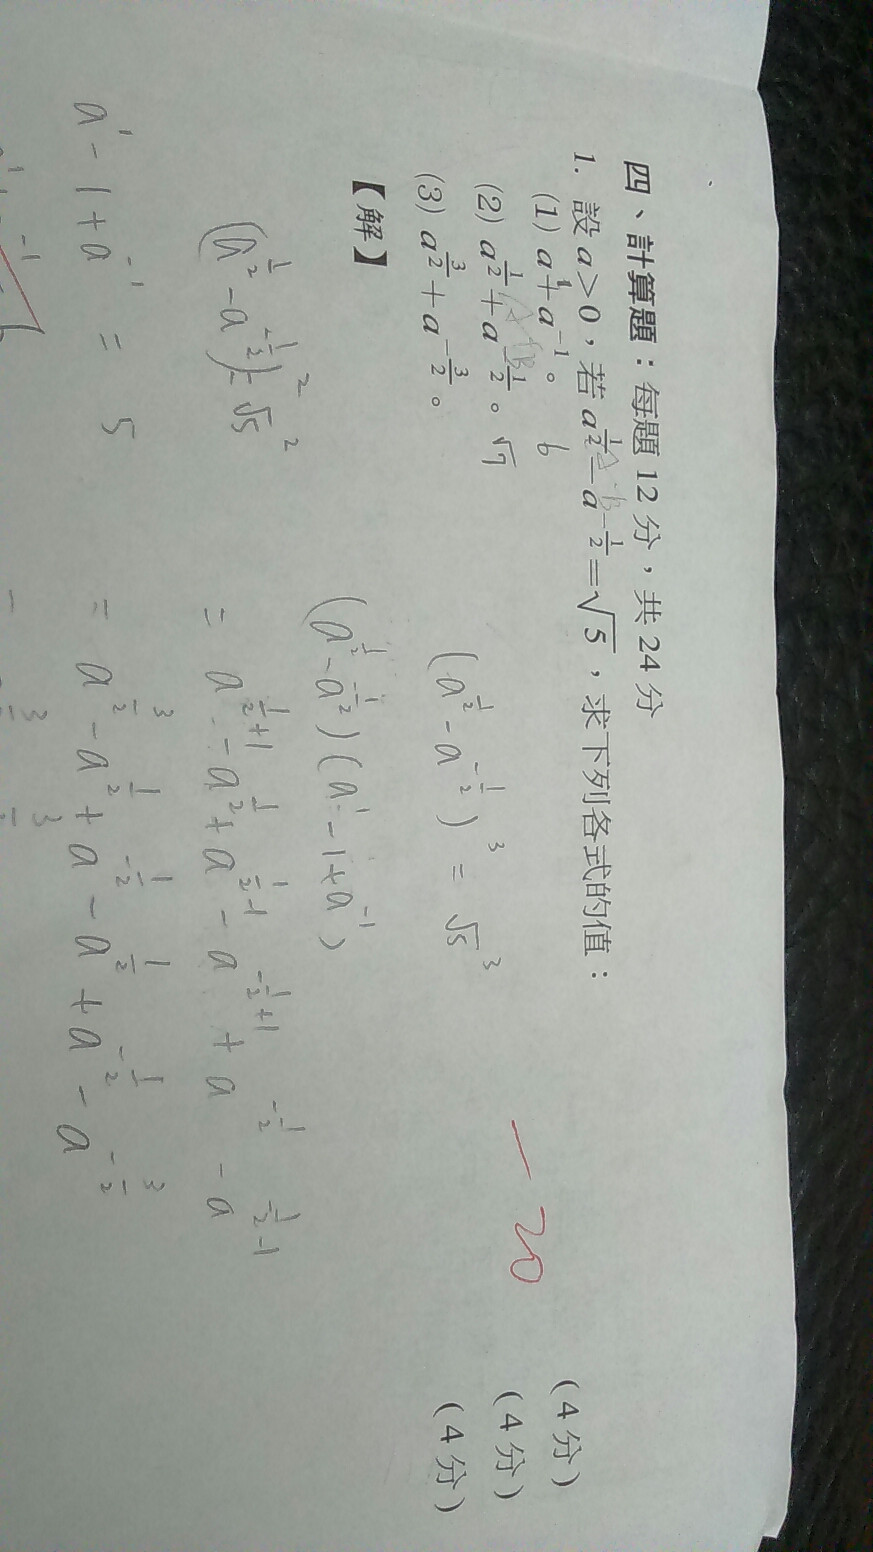 四、計算題：每題 12 分，共 24 分
1. 設 a>0，若 a^{1/2} − a^{-1/2} = √5，求下列各式的值：
(1) a + a^{-1}。 6 (4 分)
(2) a^{1/2} + a^{-1/2}。 √7 (4 分)
(3) a^{3/2} + a^{-3/2}。 (4 分)
−20
【解】
(a^{1/2} − a^{-1/2})^2 = √5^2
a^1 − 1 + a^{-1} = 5
(a^{1/2} − a^{-1/2})^3 = √5^3
(a^{1/2} − a^{-1/2})(a^1 − 1 + a^{-1})
= a^{1/2+1} − a^{1/2} + a^{1/2−1} − a^{-1/2+1} + a^{-1/2} − a^{-1/2−1}
= a^{3/2} − a^{1/2} + a^{-1/2} − a^{1/2} + a^{-1/2} − a^{-3/2}